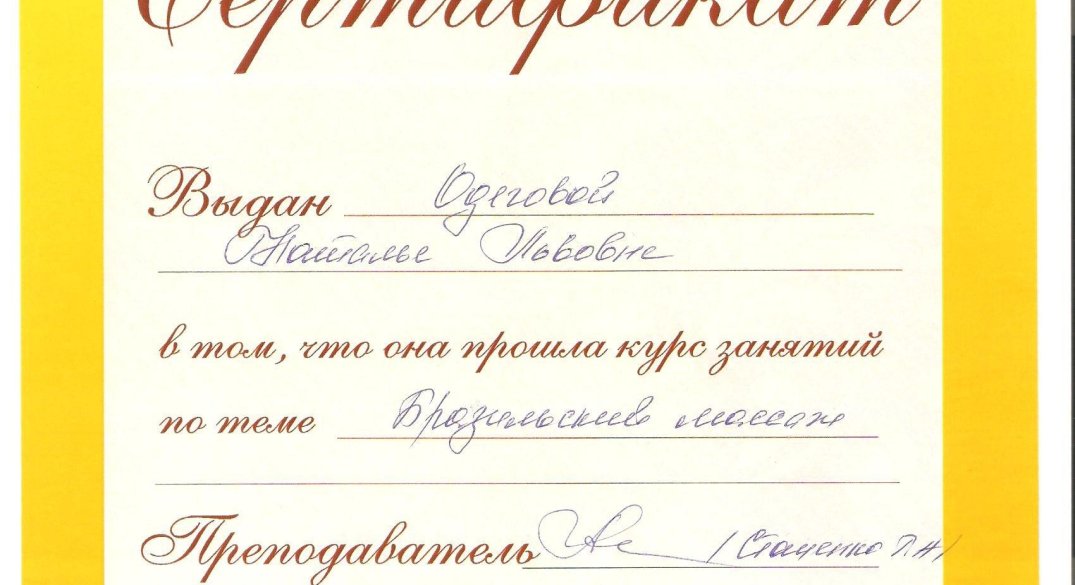 Сертификат
Выдан Одеговой
Наталье Львовне
в том, что она прошла курс занятий
по теме Бразильский массаж
Преподаватель